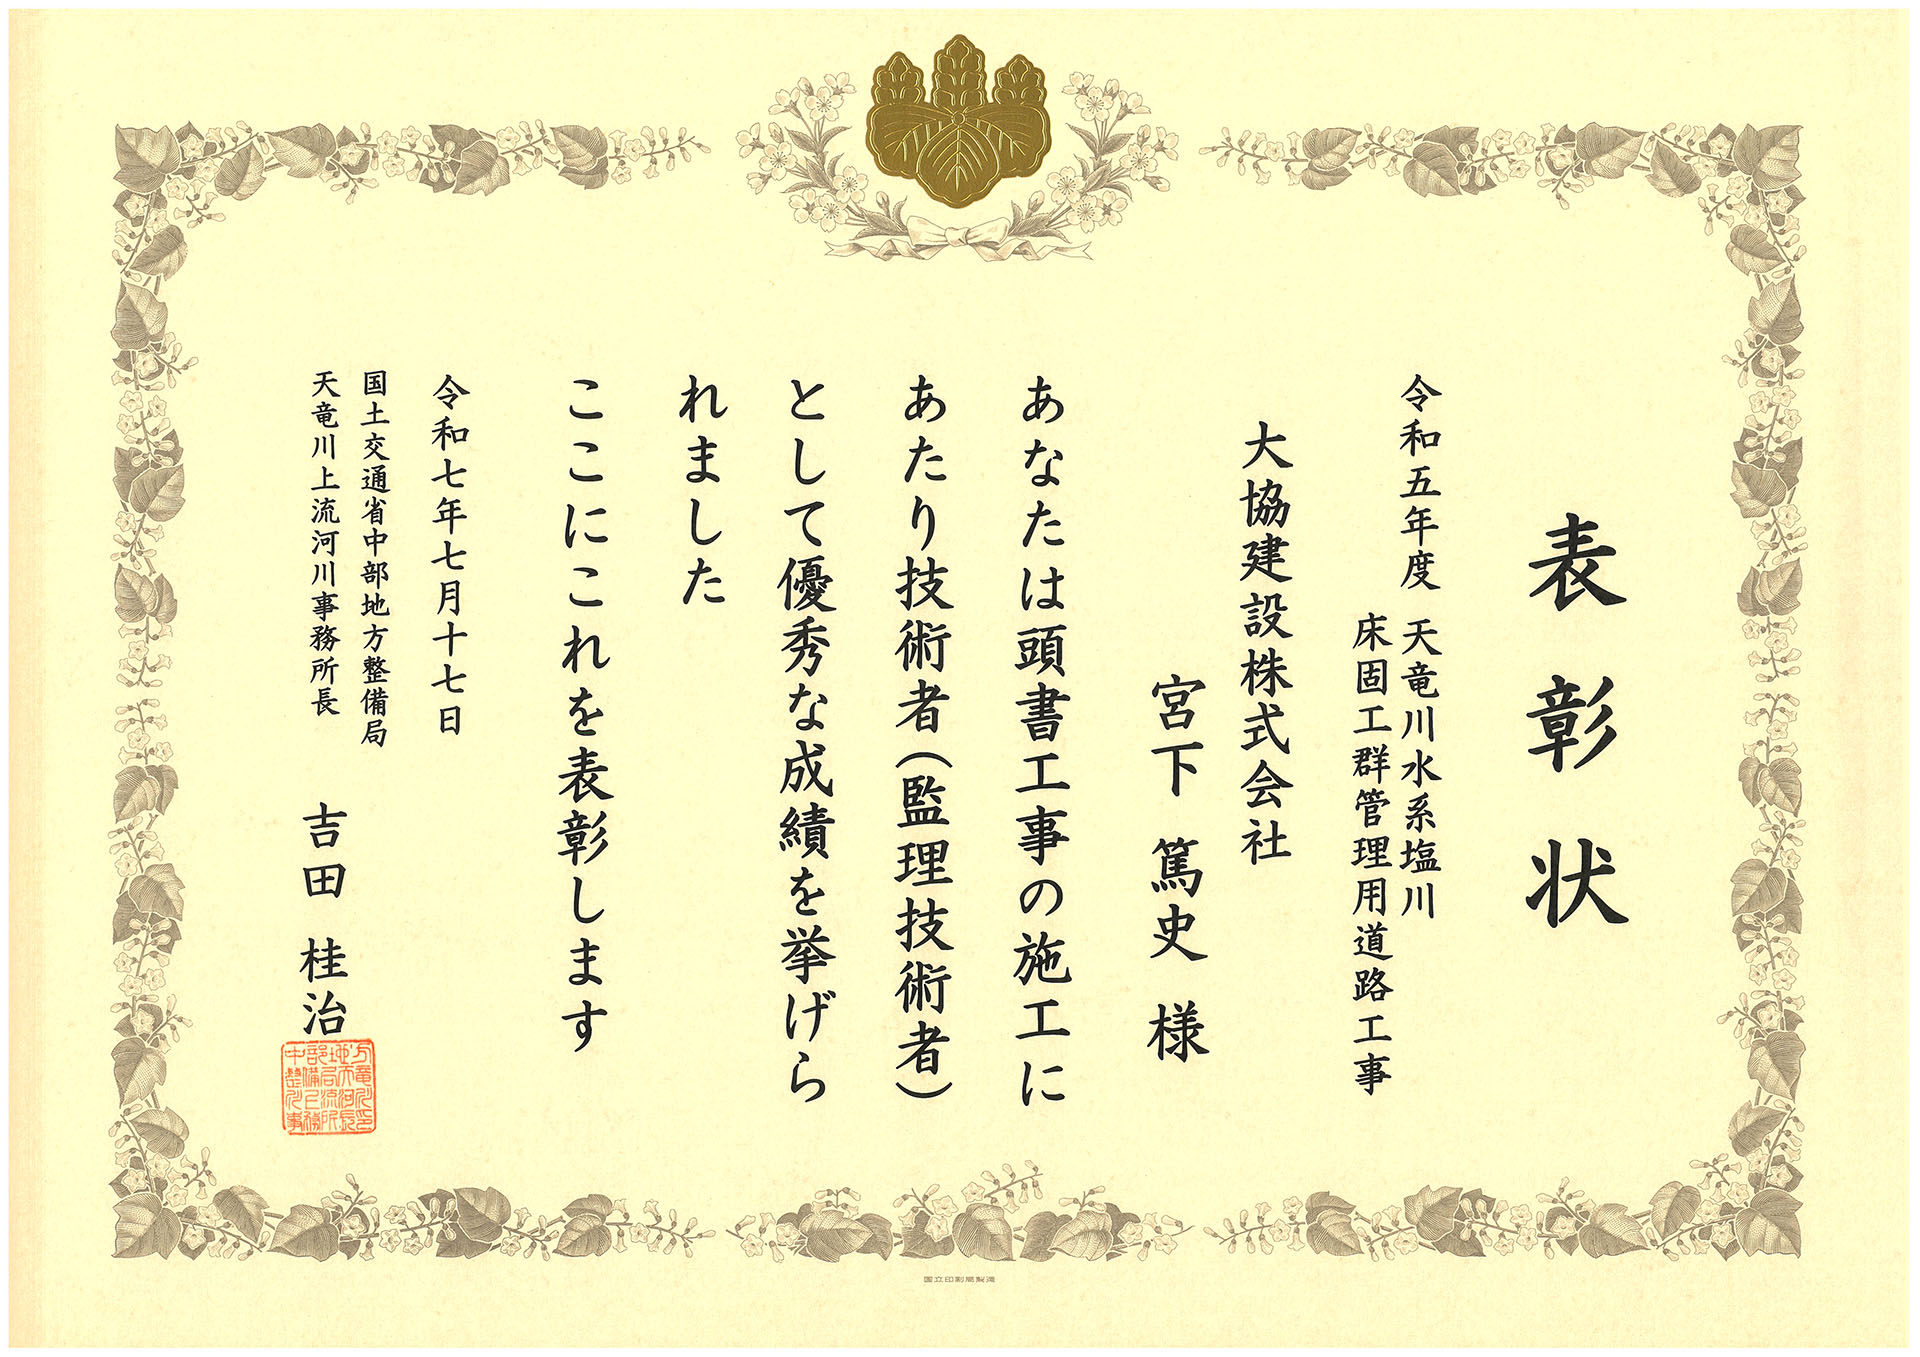 表彰状
令和五年度 天竜川水系塩川
床固工群管理用道路工事
大協建設株式会社
宮下 篤史 様
あなたは頭書工事の施工に
あたり技術者(監理技術者)
として優秀な成績を挙げら
れました
ここにこれを表彰します
令和七年七月十七日
国土交通省中部地方整備局
天竜川上流河川事務所長
吉田 桂治
国立印刷局製造